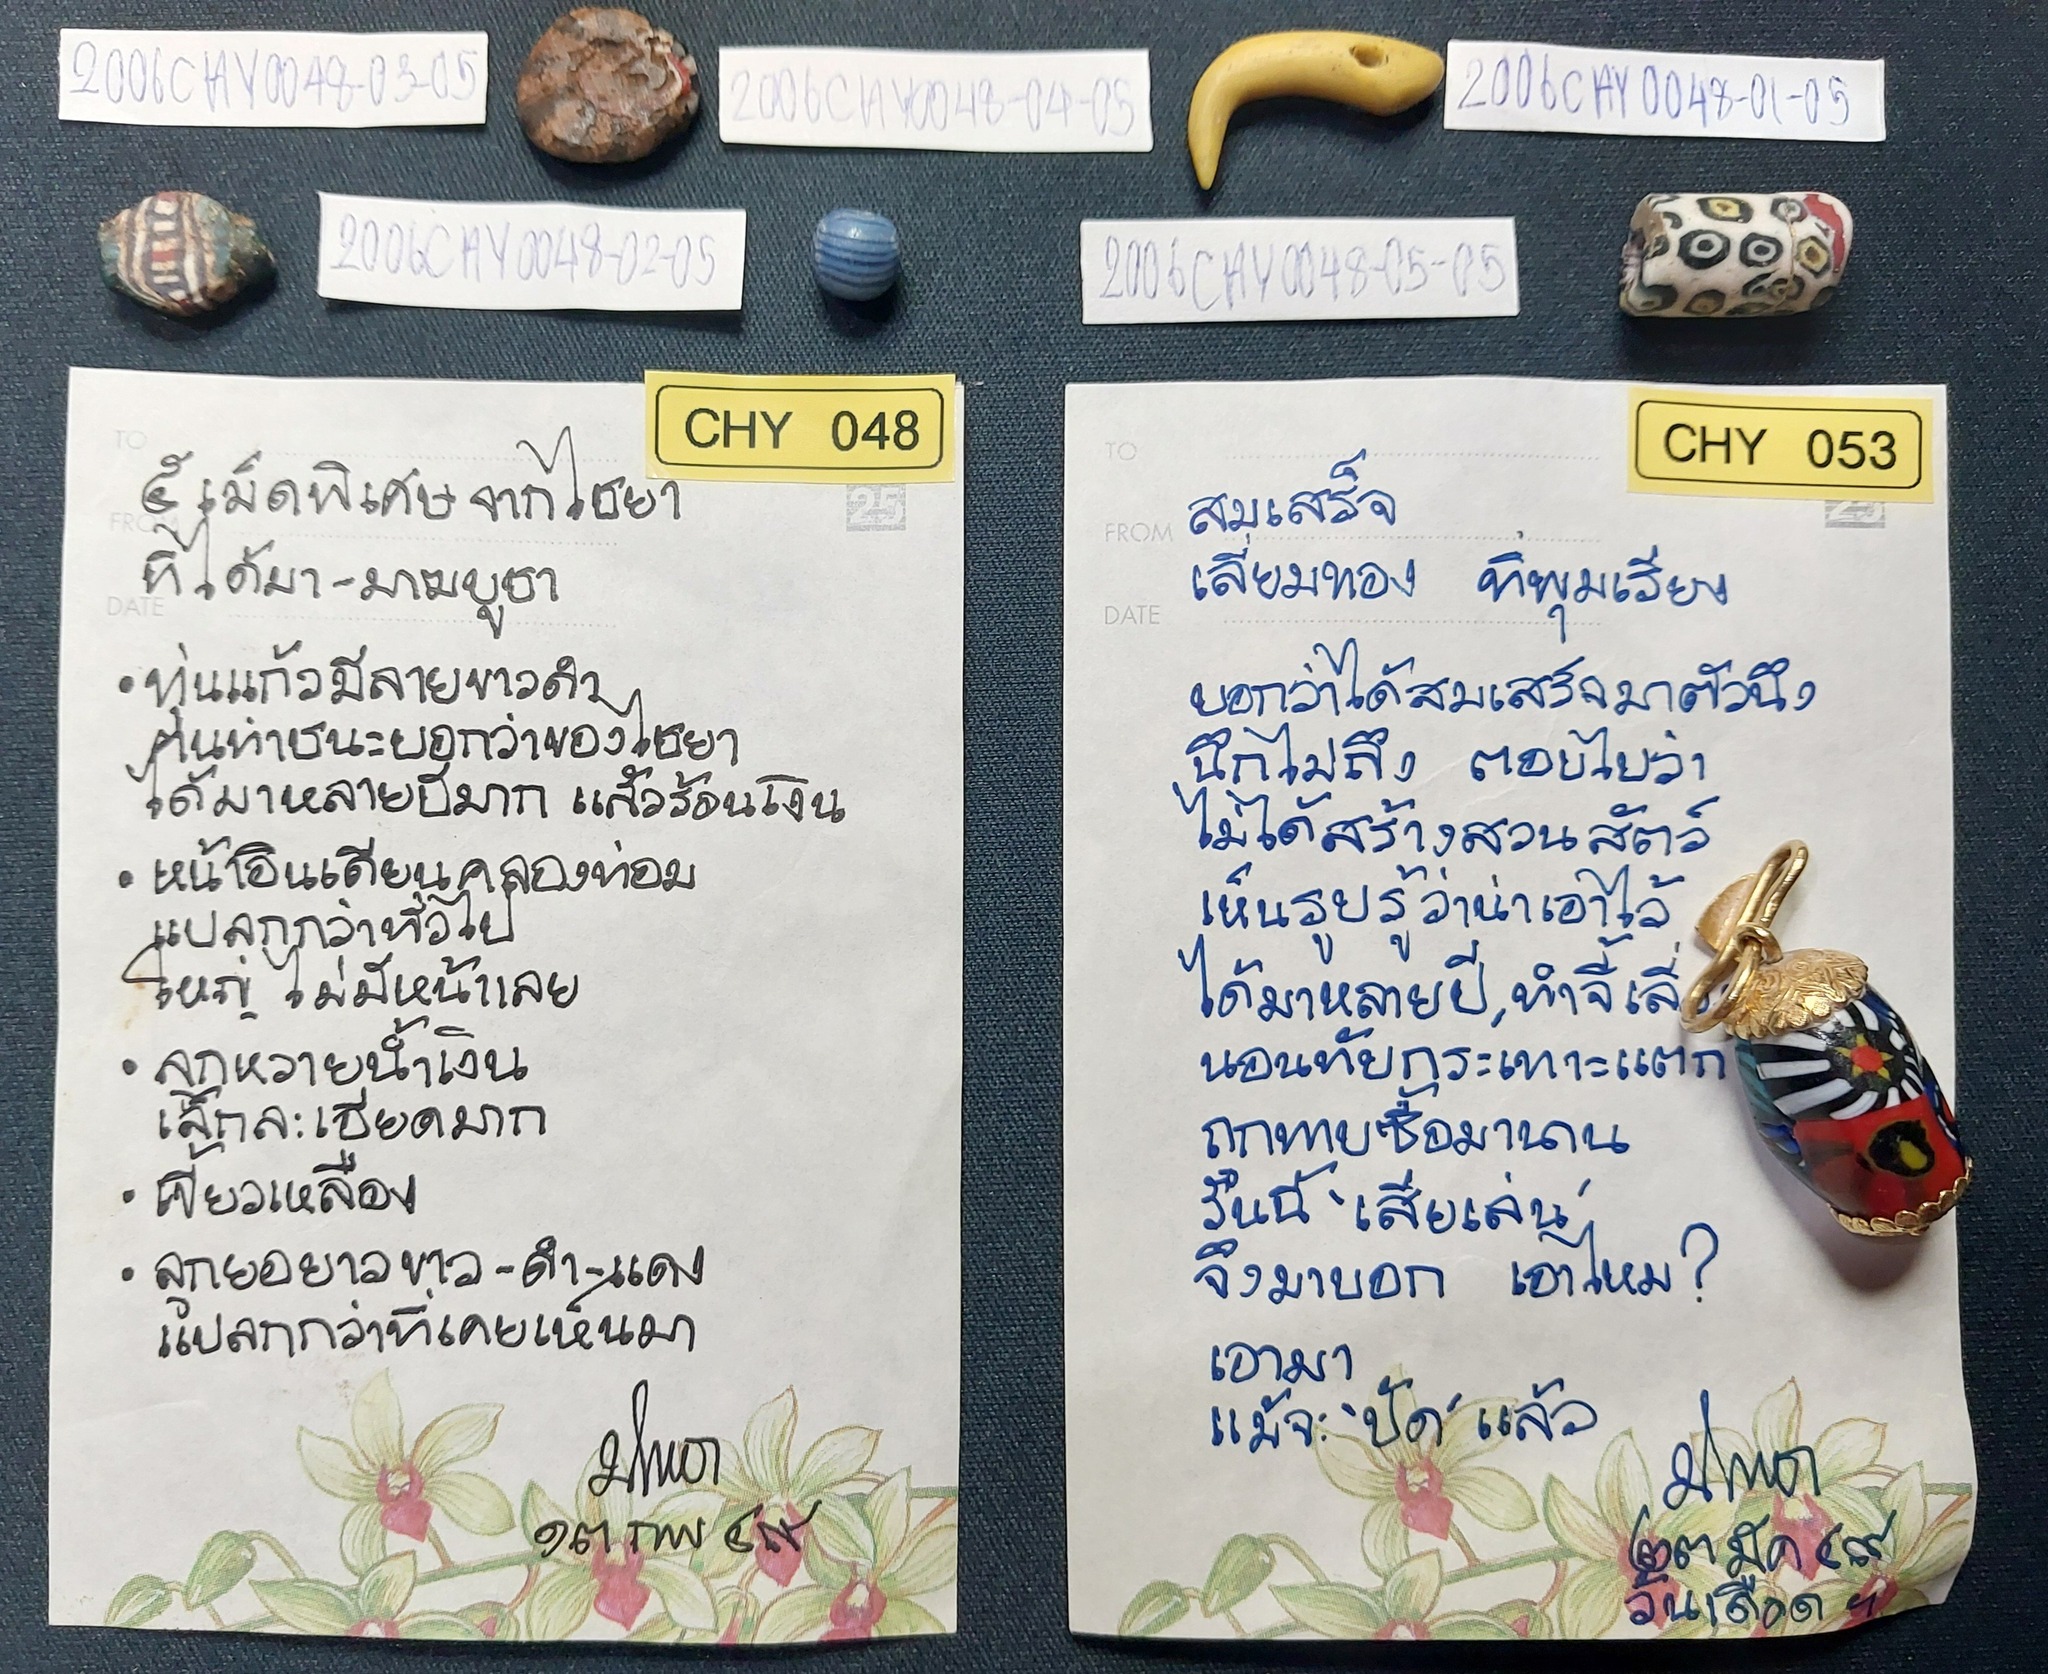 2006CHY0048-03-05
2006CHY0048-04-05
2006CHY0048-01-05
2006CHY0048-02-05
2006CHY0048-05-05
CHY 048
TO
FROM
DATE
25
๕ เม็ดพิเศษจากไชยา
ที่ได้มา-มาฆบูชา
• ทุ่นแก้วมีลายขาวดำ
ท่าชนะบอกว่าของไชยา
ได้มาหลายปีมาก แล้วร้อนเงิน
• หน้าอินเดียนคลองท่อม
แปลกกว่าทั่วไป
ใหญ่ ไม่มีหน้าเลย
• ลูกหวายน้ำเงิน
เล็กละเอียดมาก
• เขี้ยวเหลือง
• ลูกยอยาวขาว-ดำ-แดง
แปลกกว่าที่เคยเห็นมา
๑๓ กพ ๔๙
CHY 053
TO
FROM
DATE
25
สมเสร็จ
เลี่ยมทอง ที่พุมเรียง
บอกว่าได้สมเสร็จมาตัวนึง
นึกไม่ถึง ตอบไปว่า
ไม่ได้สร้างสวนสัตว์
เห็นรูปรู้ว่าน่าเอาไว้
ได้มาหลายปี, ทำจี้
นอนทับกระเทาะแตก
ถูกทาบซื้อมานาน
วันนี้ 'เสียเล่น'
จึงมาบอก เอาไหม?
เอามา
แม้จะ 'ปัด' แล้ว
๒๓ มีค ๔๙